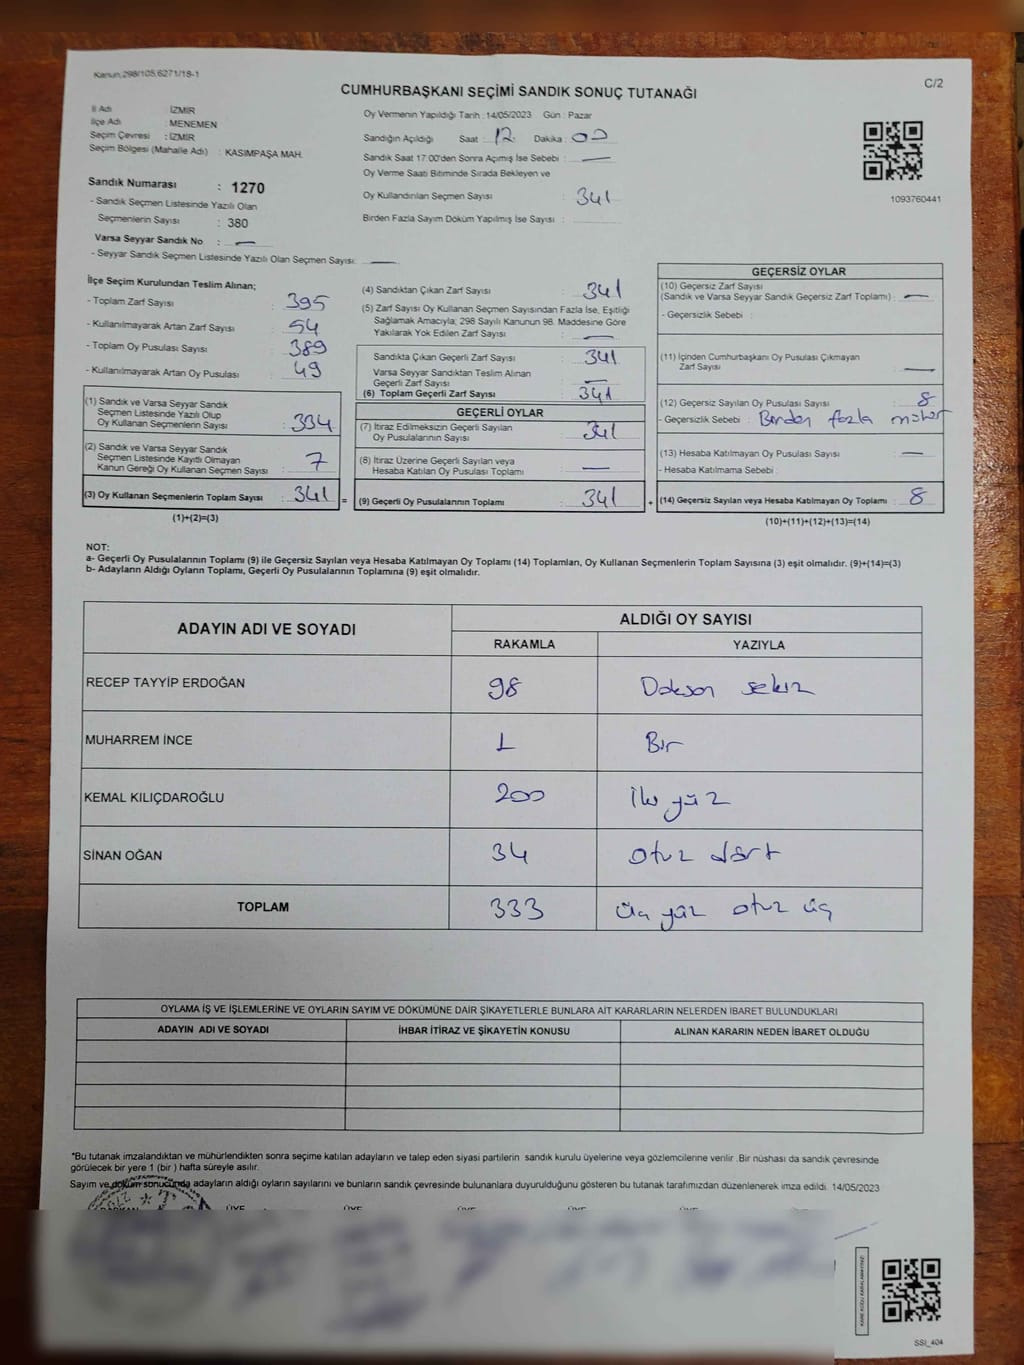 Kanun,298/105,6271/18-1
C/2
CUMHURBAŞKANI SEÇİMİ SANDIK SONUÇ TUTANAĞI
İl Adı : İZMİR
İlçe Adı : MENEMEN
Seçim Çevresi : İZMİR
Seçim Bölgesi (Mahalle Adı) : KASIMPAŞA MAH.
Sandık Numarası : 1270
- Sandık Seçmen Listesinde Yazılı Olan
Seçmenlerin Sayısı : 380
Varsa Seyyar Sandık No : —
- Seyyar Sandık Seçmen Listesinde Yazılı Olan Seçmen Sayısı: —
Oy Vermenin Yapıldığı Tarih : 14/05/2023 Gün : Pazar
Sandığın Açıldığı Saat : 12 Dakika : 00
Sandık Saat 17:00'den Sonra Açımış İse Sebebi : —
Oy Verme Saati Bitiminde Sırada Bekleyen ve
Oy Kullandırılan Seçmen Sayısı : 341
Birden Fazla Sayım Döküm Yapılmış İse Sayısı :
1093760441
İlçe Seçim Kurulundan Teslim Alınan;
- Toplam Zarf Sayısı : 395
- Kullanılmayarak Artan Zarf Sayısı : 54
- Toplam Oy Pusulası Sayısı : 389
- Kullanılmayarak Artan Oy Pusulası : 49
(1) Sandık ve Varsa Seyyar Sandık
Seçmen Listesinde Yazılı Olup
Oy Kullanan Seçmenlerin Sayısı : 334
(2) Sandık ve Varsa Seyyar Sandık
Seçmen Listesinde Kayıtlı Olmayan
Kanun Gereği Oy Kullanan Seçmen Sayısı : 7
(3) Oy Kullanan Seçmenlerin Toplam Sayısı : 341 =
(1)+(2)=(3)
(4) Sandıktan Çıkan Zarf Sayısı : 341
(5) Zarf Sayısı Oy Kullanan Seçmen Sayısından Fazla İse, Eşitliği
Sağlamak Amacıyla; 298 Sayılı Kanunun 98. Maddesine Göre
Yakılarak Yok Edilen Zarf Sayısı : —
Sandıkta Çıkan Geçerli Zarf Sayısı : 341
Varsa Seyyar Sandıktan Teslim Alınan
Geçerli Zarf Sayısı : —
(6) Toplam Geçerli Zarf Sayısı : 341
GEÇERLİ OYLAR
(7) İtiraz Edilmeksizin Geçerli Sayılan
Oy Pusulalarının Sayısı : 341
(8) İtiraz Üzerine Geçerli Sayılan veya
Hesaba Katılan Oy Pusulası Toplamı : —
(9) Geçerli Oy Pusulalarının Toplamı : 341 +
GEÇERSİZ OYLAR
(10) Geçersiz Zarf Sayısı
(Sandık ve Varsa Seyyar Sandık Geçersiz Zarf Toplamı) : —
- Geçersizlik Sebebi :
(11) İçinden Cumhurbaşkanı Oy Pusulası Çıkmayan
Zarf Sayısı : —
(12) Geçersiz Sayılan Oy Pusulası Sayısı : 8
- Geçersizlik Sebebi : Birden fazla mühür
(13) Hesaba Katılmayan Oy Pusulası Sayısı : —
- Hesaba Katılmama Sebebi :
(14) Geçersiz Sayılan veya Hesaba Katılmayan Oy Toplamı : 8
(10)+(11)+(12)+(13)=(14)
NOT:
a- Geçerli Oy Pusulalarının Toplamı (9) ile Geçersiz Sayılan veya Hesaba Katılmayan Oy Toplamı (14) Toplamları, Oy Kullanan Seçmenlerin Toplam Sayısına (3) eşit olmalıdır. (9)+(14)=(3)
b- Adayların Aldığı Oyların Toplamı, Geçerli Oy Pusulalarının Toplamına (9) eşit olmalıdır.
ADAYIN ADI VE SOYADI
ALDIĞI OY SAYISI
RAKAMLA YAZIYLA
RECEP TAYYİP ERDOĞAN 98 Doksan sekiz
MUHARREM İNCE 1 Bir
KEMAL KILIÇDAROĞLU 200 İki yüz
SİNAN OĞAN 34 otuz dört
TOPLAM 333 üç yüz otuz üç
OYLAMA İŞ VE İŞLEMLERİNE VE OYLARIN SAYIM VE DÖKÜMÜNE DAİR ŞİKAYETLERLE BUNLARA AİT KARARLARIN NELERDEN İBARET BULUNDUKLARI
ADAYIN ADI VE SOYADI İHBAR İTİRAZ VE ŞİKAYETİN KONUSU ALINAN KARARIN NEDEN İBARET OLDUĞU
*Bu tutanak imzalandıktan ve mühürlendikten sonra seçime katılan adayların ve talep eden siyasi partilerin sandık kurulu üyelerine veya gözlemcilerine verilir .Bir nüshası da sandık çevresinde
görülecek bir yere 1 (bir ) hafta süreyle asılır.
Sayım ve döküm sonucunda adayların aldığı oyların sayılarını ve bunların sandık çevresinde bulunanlara duyurulduğunu gösteren bu tutanak tarafımızdan düzenlenerek imza edildi. 14/05/2023
BAŞKAN ÜYE ÜYE ÜYE ÜYE ÜYE ÜYE
SSİ_404